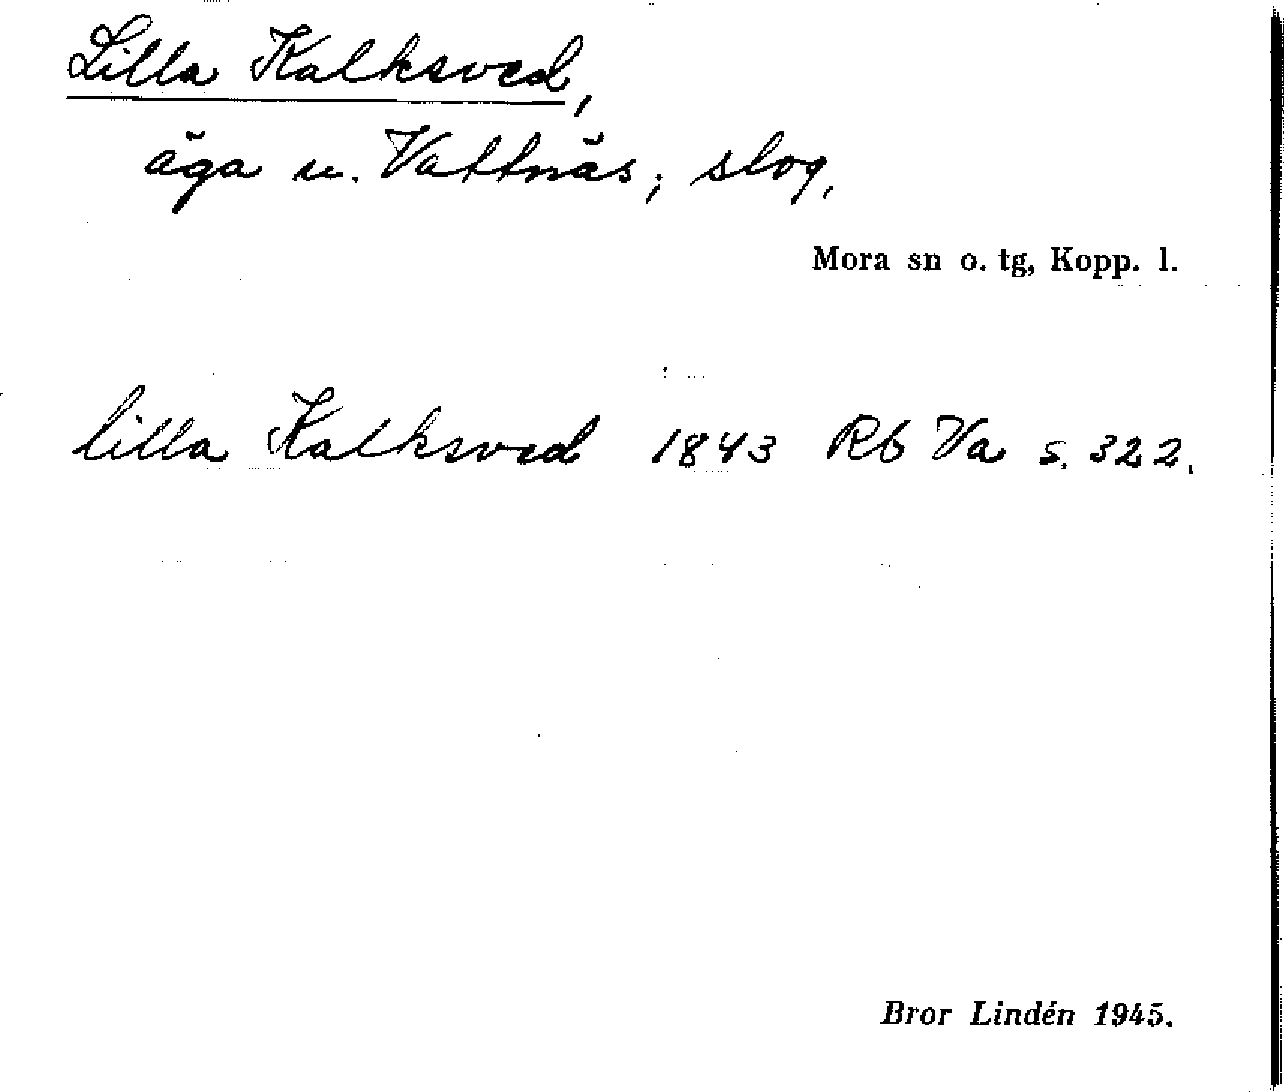 Lilla Kalksved,
äga u. Vattnäs; slog,
Mora sn o. tg, Kopp. l.
lilla Kalksved 1843 Rb Va s. 322.
Bror Lindén 1945.